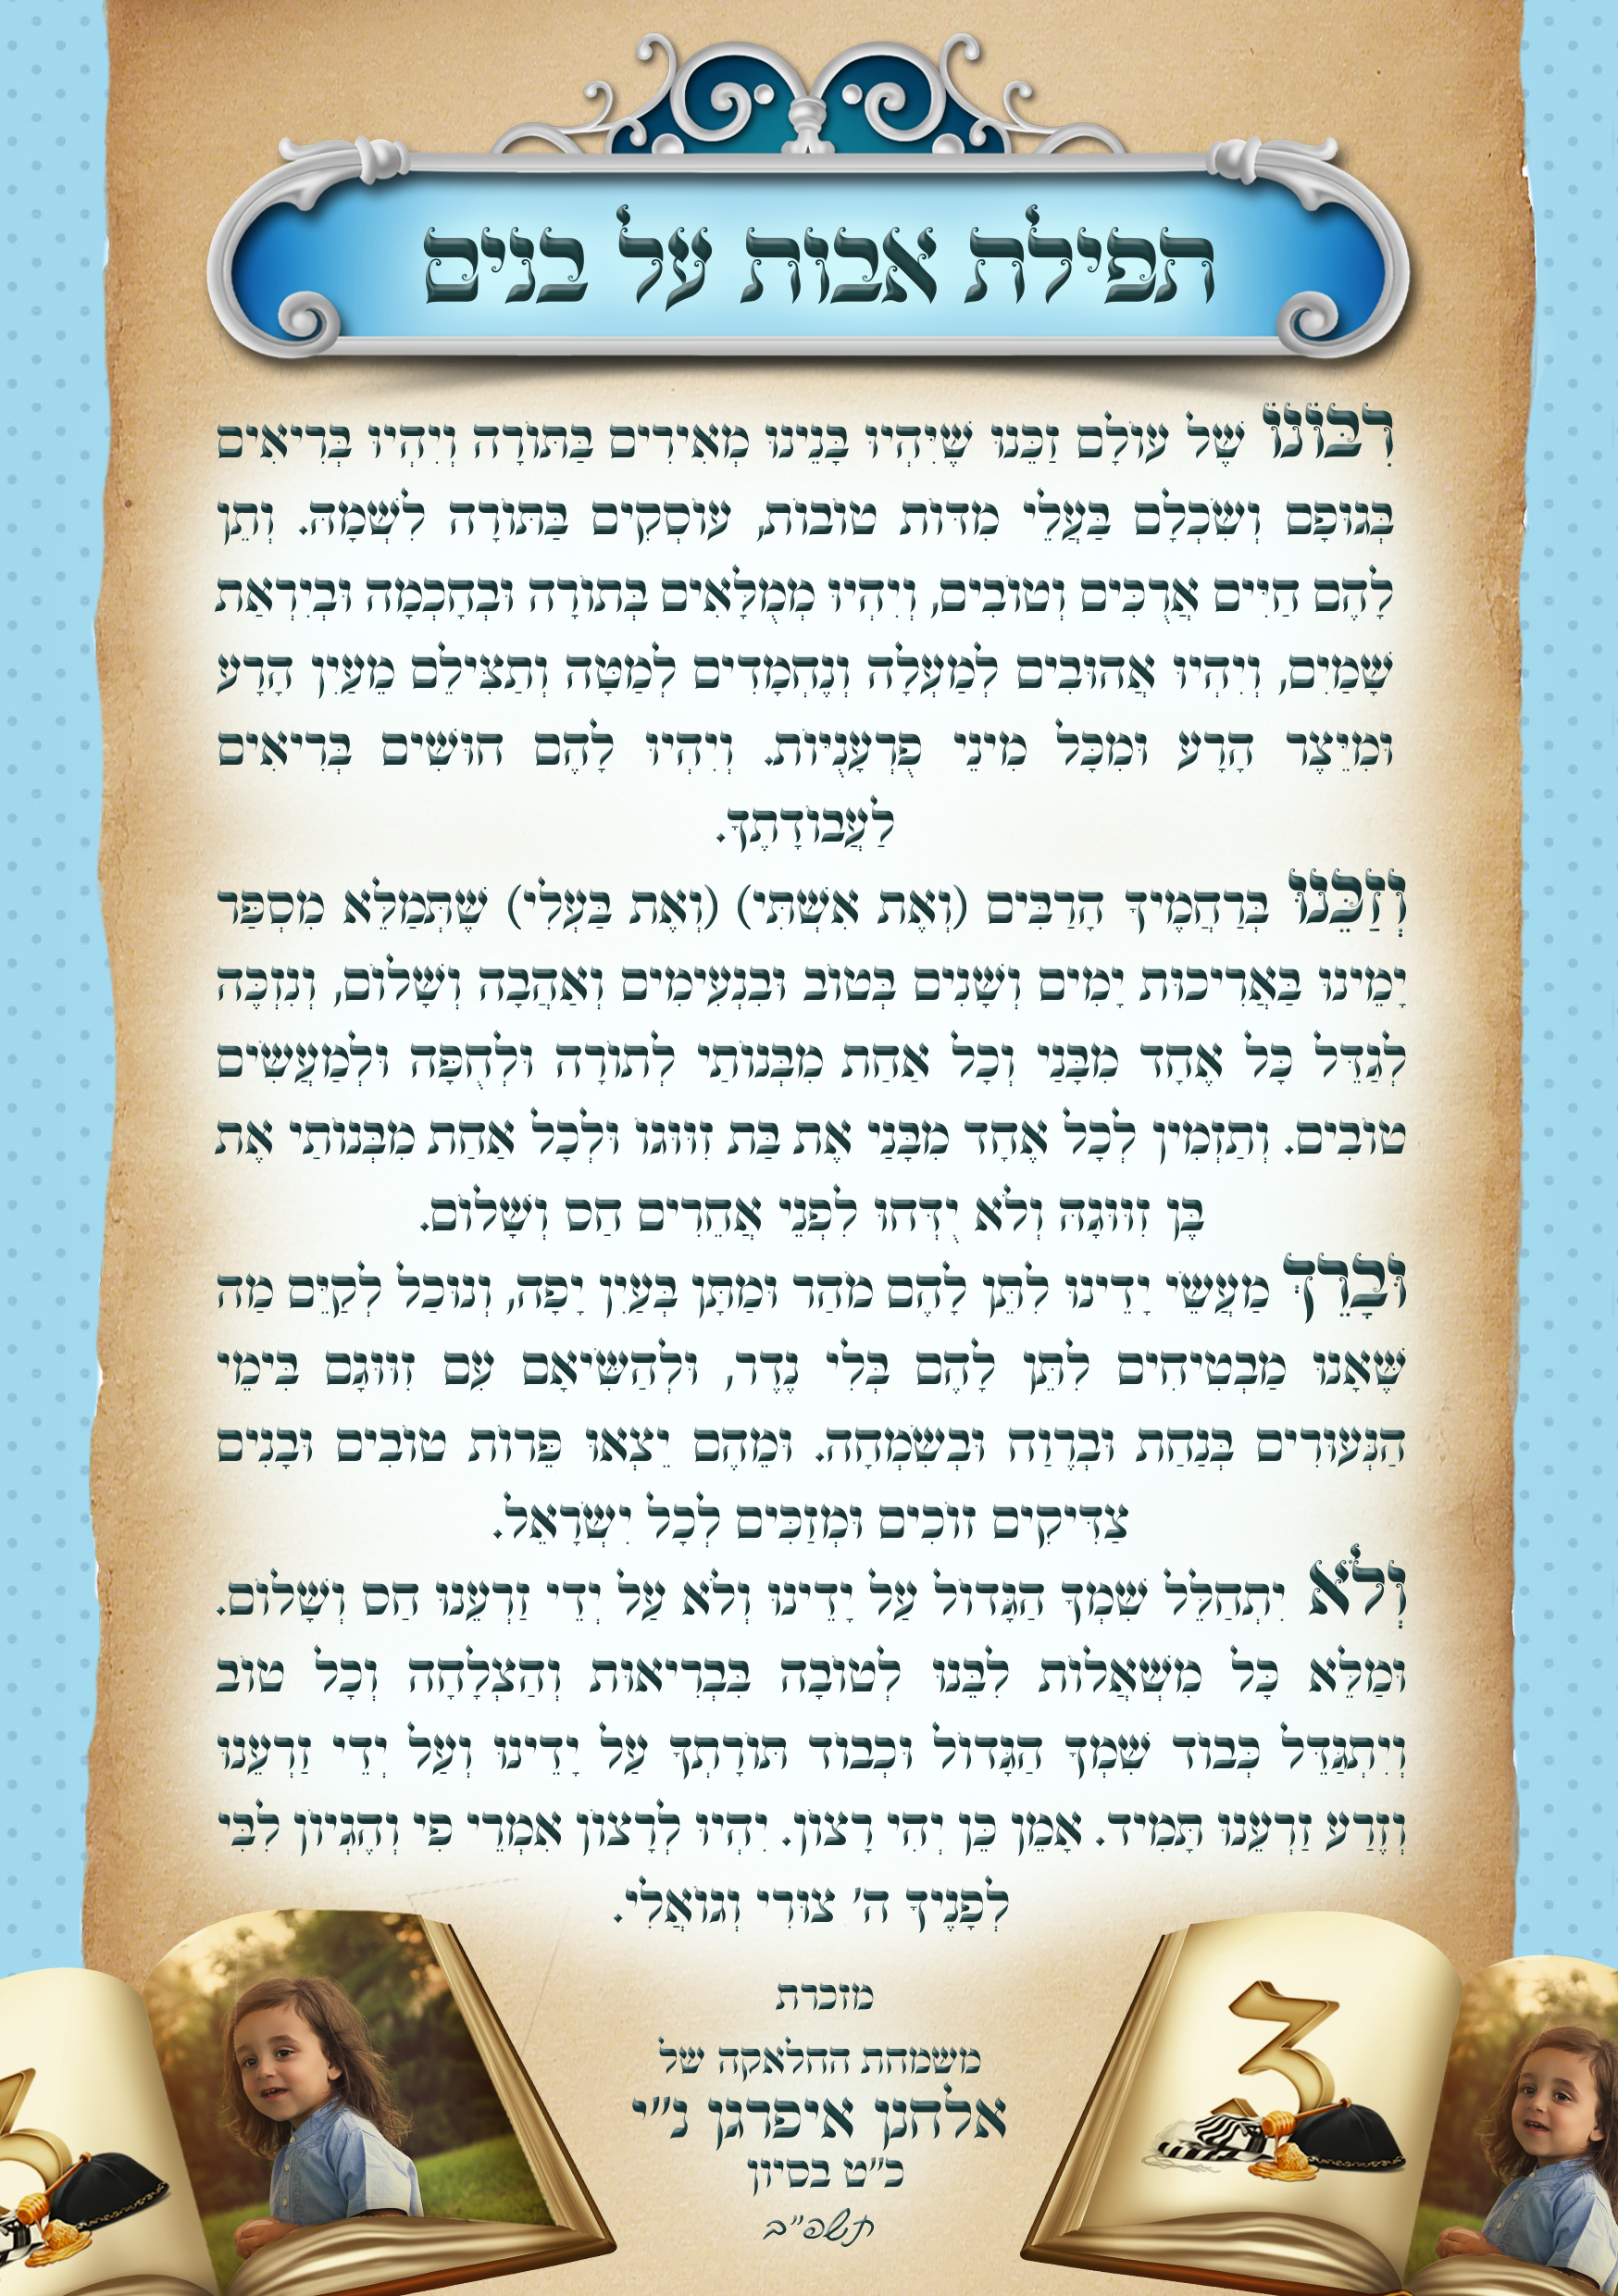 תפילת אבות על בנים
רִבּוֹנוֹ שֶׁל עוֹלָם זַכֵּנוּ שֶׁיִּהְיוּ בָּנֵינוּ מְאִירִים בַּתּוֹרָה וְיִהְיוּ בְּרִיאִים
בְּגוּפָם וְשִׂכְלָם בַּעֲלֵי מִדּוֹת טוֹבוֹת, עוֹסְקִים בַּתּוֹרָה לִשְׁמָהּ. וְתֵן
לָהֶם חַיִּים אֲרֻכִּים וְטוֹבִים, וְיִהְיוּ מְמֻלָּאִים בְּתוֹרָה וּבְחָכְמָה וּבְיִרְאַת
שָׁמַיִם, וְיִהְיוּ אֲהוּבִים לְמַעְלָה וְנֶחְמָדִים לְמַטָּה וְתַצִּילֵם מֵעַיִן הָרָע
וּמִיֵּצֶר הָרָע וּמִכָּל מִינֵי פֻּרְעָנֻיּוֹת. וְיִהְיוּ לָהֶם חוּשִׁים בְּרִיאִים
לַעֲבוֹדָתֶךָ.
וְזַכֵּנוּ בְּרַחֲמֶיךָ הָרַבִּים (וְאֶת אִשְׁתִּי) (וְאֶת בַּעְלִי) שֶׁתְּמַלֵּא מִסְפַּר
יָמֵינוּ בַּאֲרִיכוּת יָמִים וְשָׁנִים בְּטוֹב וּבִנְעִימִים וְאַהֲבָה וְשָׁלוֹם, וְנִזְכֶּה
לְגַדֵּל כָּל אֶחָד מִבָּנַי וְכָל אַחַת מִבְּנוֹתַי לְתוֹרָה וּלְחֻפָּה וּלְמַעֲשִׂים
טוֹבִים. וְתַזְמִין לְכָל אֶחָד מִבָּנַי אֶת בַּת זִוּוּגוֹ וּלְכָל אַחַת מִבְּנוֹתַי אֶת
בֶּן זִוּוּגָהּ וְלֹא יִדָּחוּ לִפְנֵי אֲחֵרִים חַס וְשָׁלוֹם.
וּבָרֵךְ מַעֲשֵׂי יָדֵינוּ לִתֵּן לָהֶם מֹהַר וּמַתָּן בְּעַיִן יָפָה, וְנוּכַל לְקַיֵּם מַה
שֶּׁאָנוּ מַבְטִיחִים לִתֵּן לָהֶם בְּלִי נֶדֶר, וּלְהַשִּׂיאָם עִם זִוּוּגָם בִּימֵי
הַנְּעוּרִים בְּנַחַת וּבְרֶוַח וּבְשִׂמְחָה. וּמֵהֶם יֵצְאוּ פֵּרוֹת טוֹבִים וּבָנִים
צַדִּיקִים זוֹכִים וּמְזַכִּים לְכָל יִשְׂרָאֵל.
וְלֹא יִתְחַלֵּל שִׁמְךָ הַגָּדוֹל עַל יָדֵינוּ וְלֹא עַל יְדֵי זַרְעֵנוּ חַס וְשָׁלוֹם.
וּמַלֵּא כָּל מִשְׁאֲלוֹת לִבֵּנוּ לְטוֹבָה בִּבְרִיאוּת וְהַצְלָחָה וְכָל טוֹב
וְיִתְגַּדֵּל כְּבוֹד שִׁמְךָ הַגָּדוֹל וּכְבוֹד תּוֹרָתְךָ עַל יָדֵינוּ וְעַל יְדֵי זַרְעֵנוּ
וְזֶרַע זַרְעֵנוּ תָּמִיד. אָמֵן כֵּן יְהִי רָצוֹן. יִהְיוּ לְרָצוֹן אִמְרֵי פִי וְהֶגְיוֹן לִבִּי
לְפָנֶיךָ ה' צוּרִי וְגוֹאֲלִי.
מזכרת
משמחת החלאקה של
אלחנן איפרגן נ"י
כ"ט בסיון
תשפ"ב
3